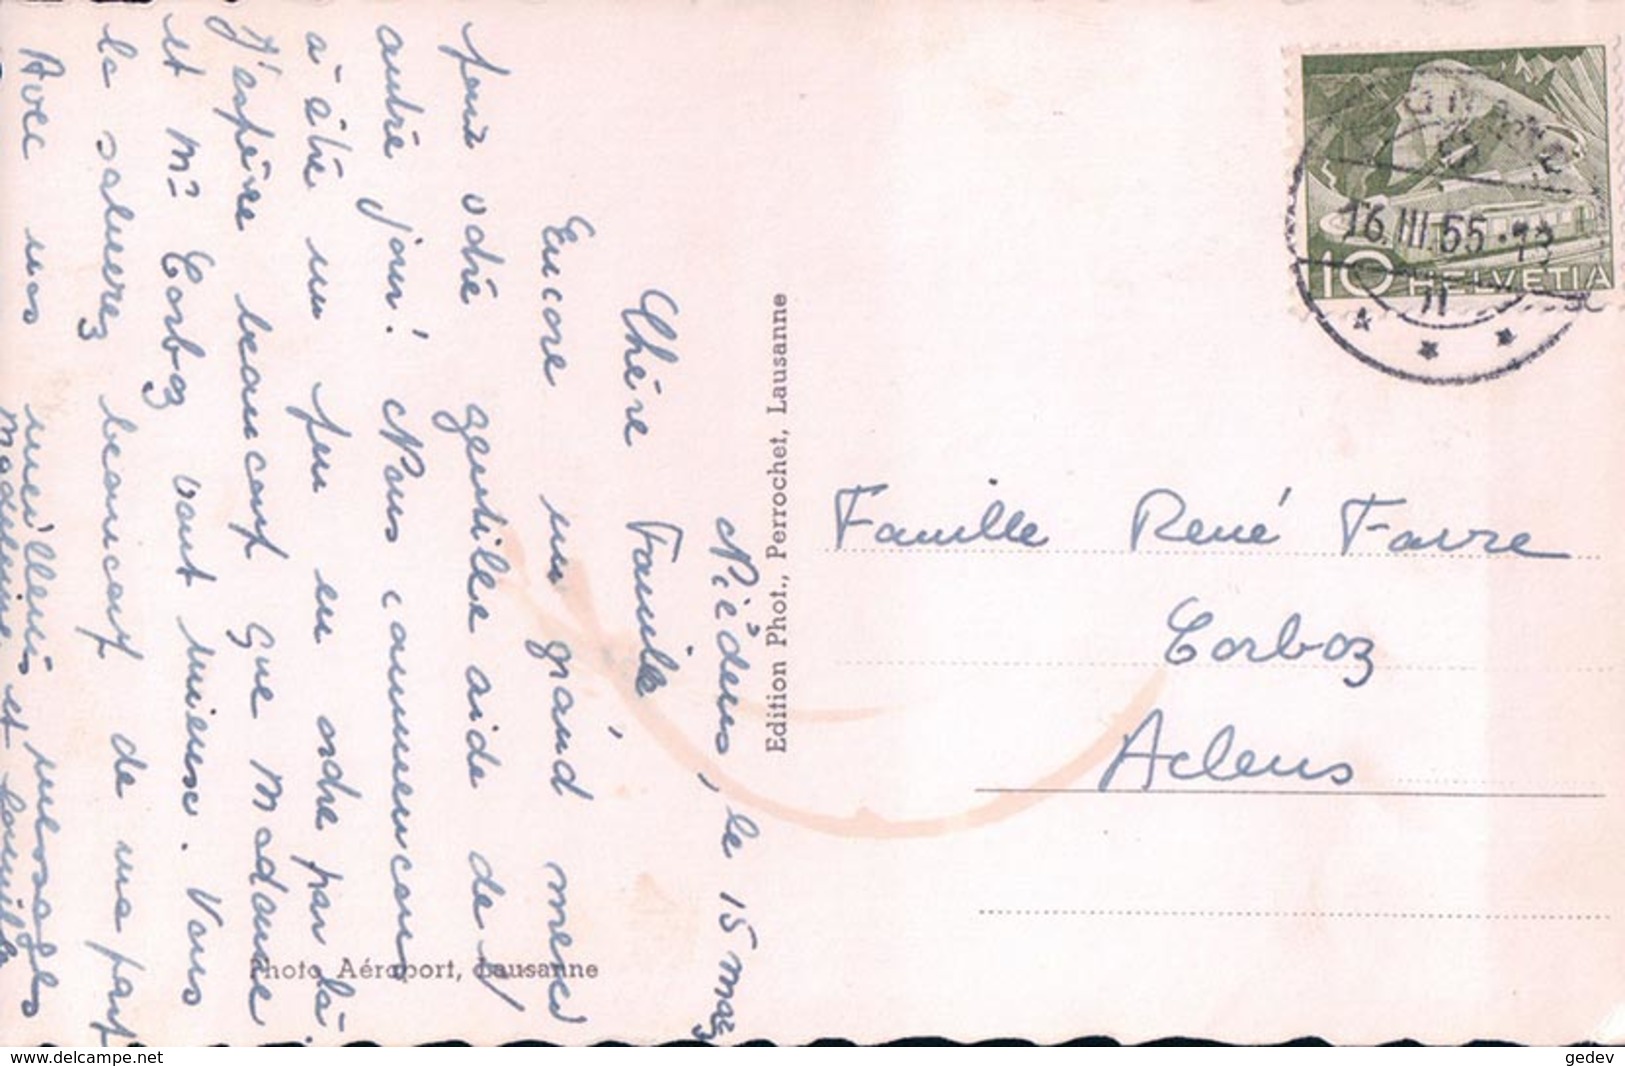 Niédens, le 15 mars
Chère Famille,
Encore un grand merci
pour votre gentille aide de l'
autre jour! Nous commençons
à être un peu en ordre par là.
J'espère beaucoup que Madame
et Mr Corboz vont mieux. Vous
les saluerez beaucoup de ma part
Avec nos meilleurs messages
Madeleine et famille
Edition Phot., Perrochet, Lausanne
Photo Aéroport, Lausanne
16.III.55
10 HELVETIA
Famille René Favre
Corboz
Aclens
www.delcampe.net
gedev